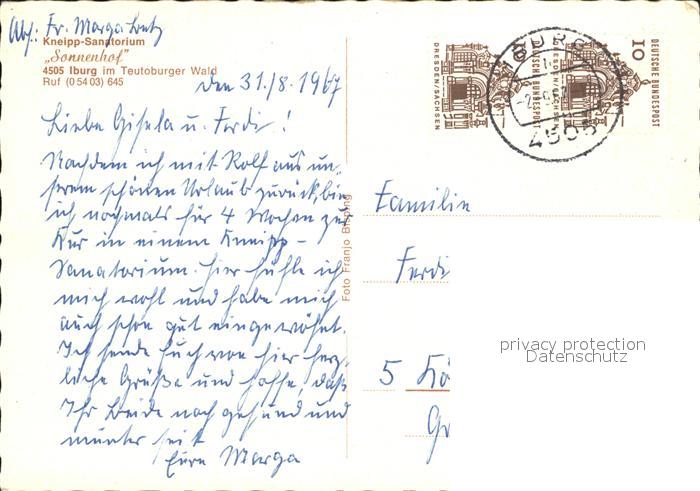 Abs.: Fr. Marga
Kneipp-Sanatorium
„Sonnenhof"
4505 Iburg im Teutoburger Wald
Ruf (0 54 03) 645
den 31./8. 1967
Liebe Gisela u. Ferdi!
Nachdem ich mit Rolf aus un-
serem schönen Urlaub zurück, bin
ich nochmals für 4 Wochen zur
Kur in einem Kneipp-
Sanatorium. Hier fühle ich
mich wohl und habe mich
auch schon gut eingewöhnt.
Ich sende Euch von hier herz-
liche Grüße und hoffe, daß
Ihr beide noch gesund und
munter seit
Eure Marga
Foto Franjo
DRESDEN/SACHSEN
DEUTSCHE BUNDESPOST
DRESDEN/SACHSEN
10
DEUTSCHE BUNDESPOST
IBURG
4505
Familie
Ferdi
5 Kö
Gr
privacy protection
Datenschutz